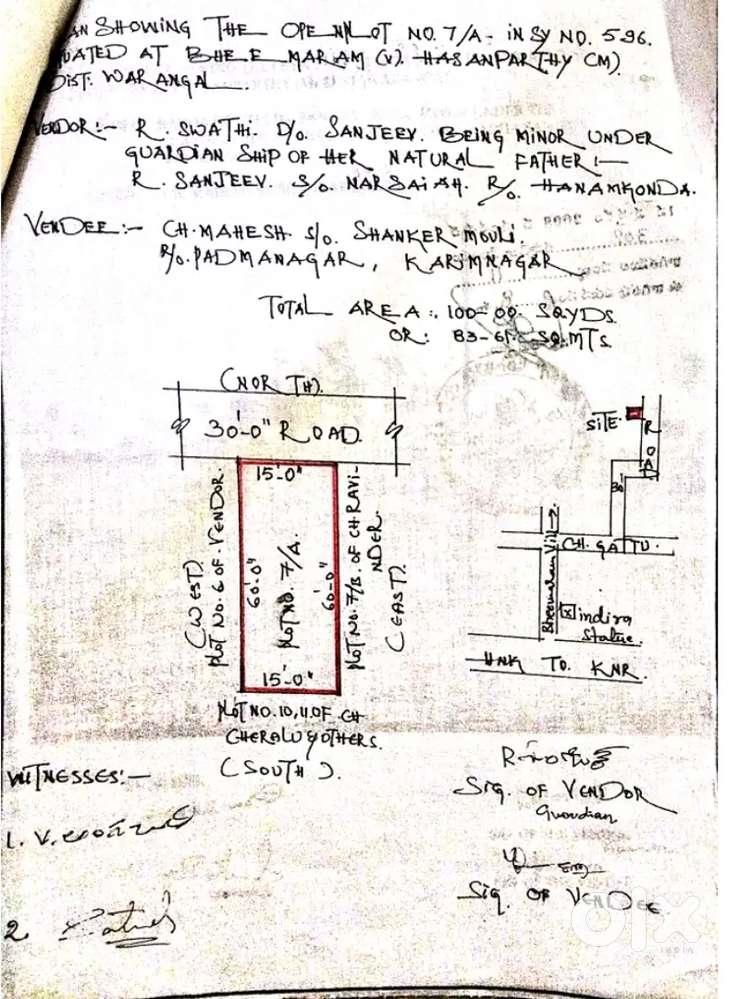 AN SHOWING THE OPEN PLOT NO. 7/A- IN SY NO. 596.
UATED AT BHEEMARAM (V). HASANPARTHY (M)
DIST. WARANGAL.
VENDOR:- R. SWATHI. D/O. SANJEEV. BEING MINOR UNDER
GUARDIAN SHIP OF HER NATURAL FATHER:-
R. SANJEEV. S/O. NARSAIAH. R/O. HANAMKONDA.
VENDEE:- CH. MAHESH S/O. SHANKER MOULI.
R/O. PADMANAGAR, KARIMNAGAR
TOTAL AREA:. 100-00. SQYDS.
OR: 83-61. SQ.MTS.
(NORTH).
30'-0" ROAD.
15'-0"
(WEST)
PLOT NO. 6 OF. VENDOR.
60'-0"
PLOT NO. 7/A.
60'-0"
PLOT NO. 7/B. OF CH RAVI-
NDER.
(EAST).
15'-0"
PLOT NO. 10, 11 OF CH
CHERALU & OTHERS.
(SOUTH).
SITE.
ROAD
30'
CH. GATTU.
Bheemaram Vill→
indira
statue.
HNK TO. KNR.
WITNESSES:-
1. V.
2.
R
Sig. OF VENDOR
Guardian
Sig. OF VENDEE
olx
INDIA